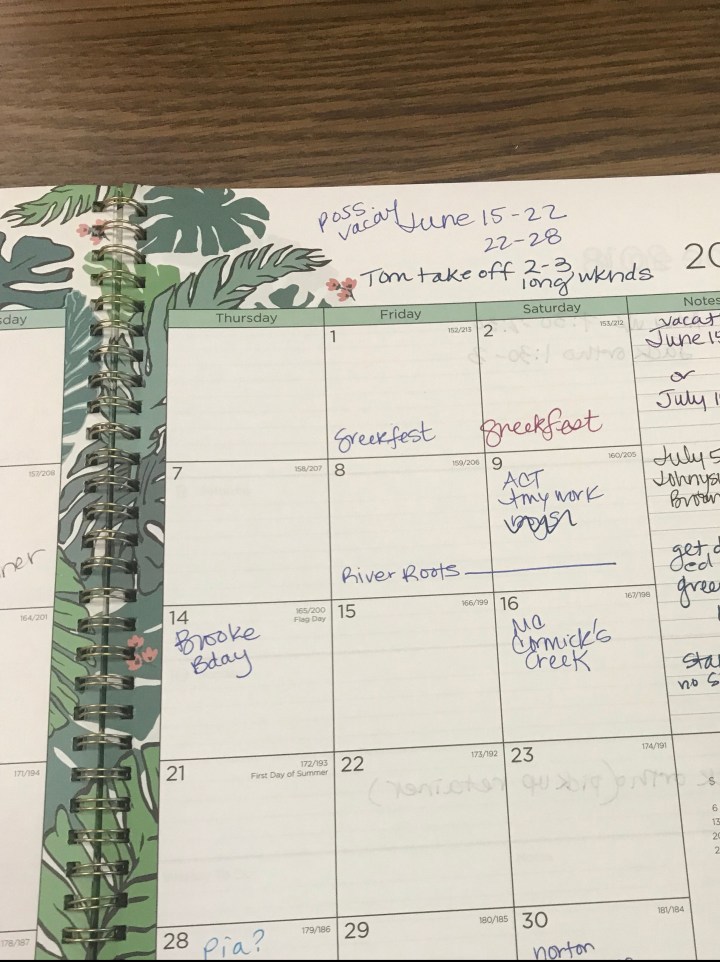 poss.
vacat June 15-22
22-28
Tom take off 2-3
long wknds
20
sday
Thursday
Friday
Saturday
Notes
1
152/213
2
153/212
vacat
June 15
or
July 1
Greekfest
Greekfest
157/208
7
158/207
8
159/206
9
160/205
ACT
July 5
Johnys
Brown
ner
River Roots
get d
ged
gree
164/201
14
165/200
Flag Day
Brooke
Bday
15
166/199
16
167/198
MC
Cormick's
Creek
sta
no s
171/194
21
172/193
First Day of Summer
22
173/192
23
174/191
(pick up retainer)
S
6
13
20
2
178/187
28
179/186
Pia?
29
180/185
30
181/184
norton